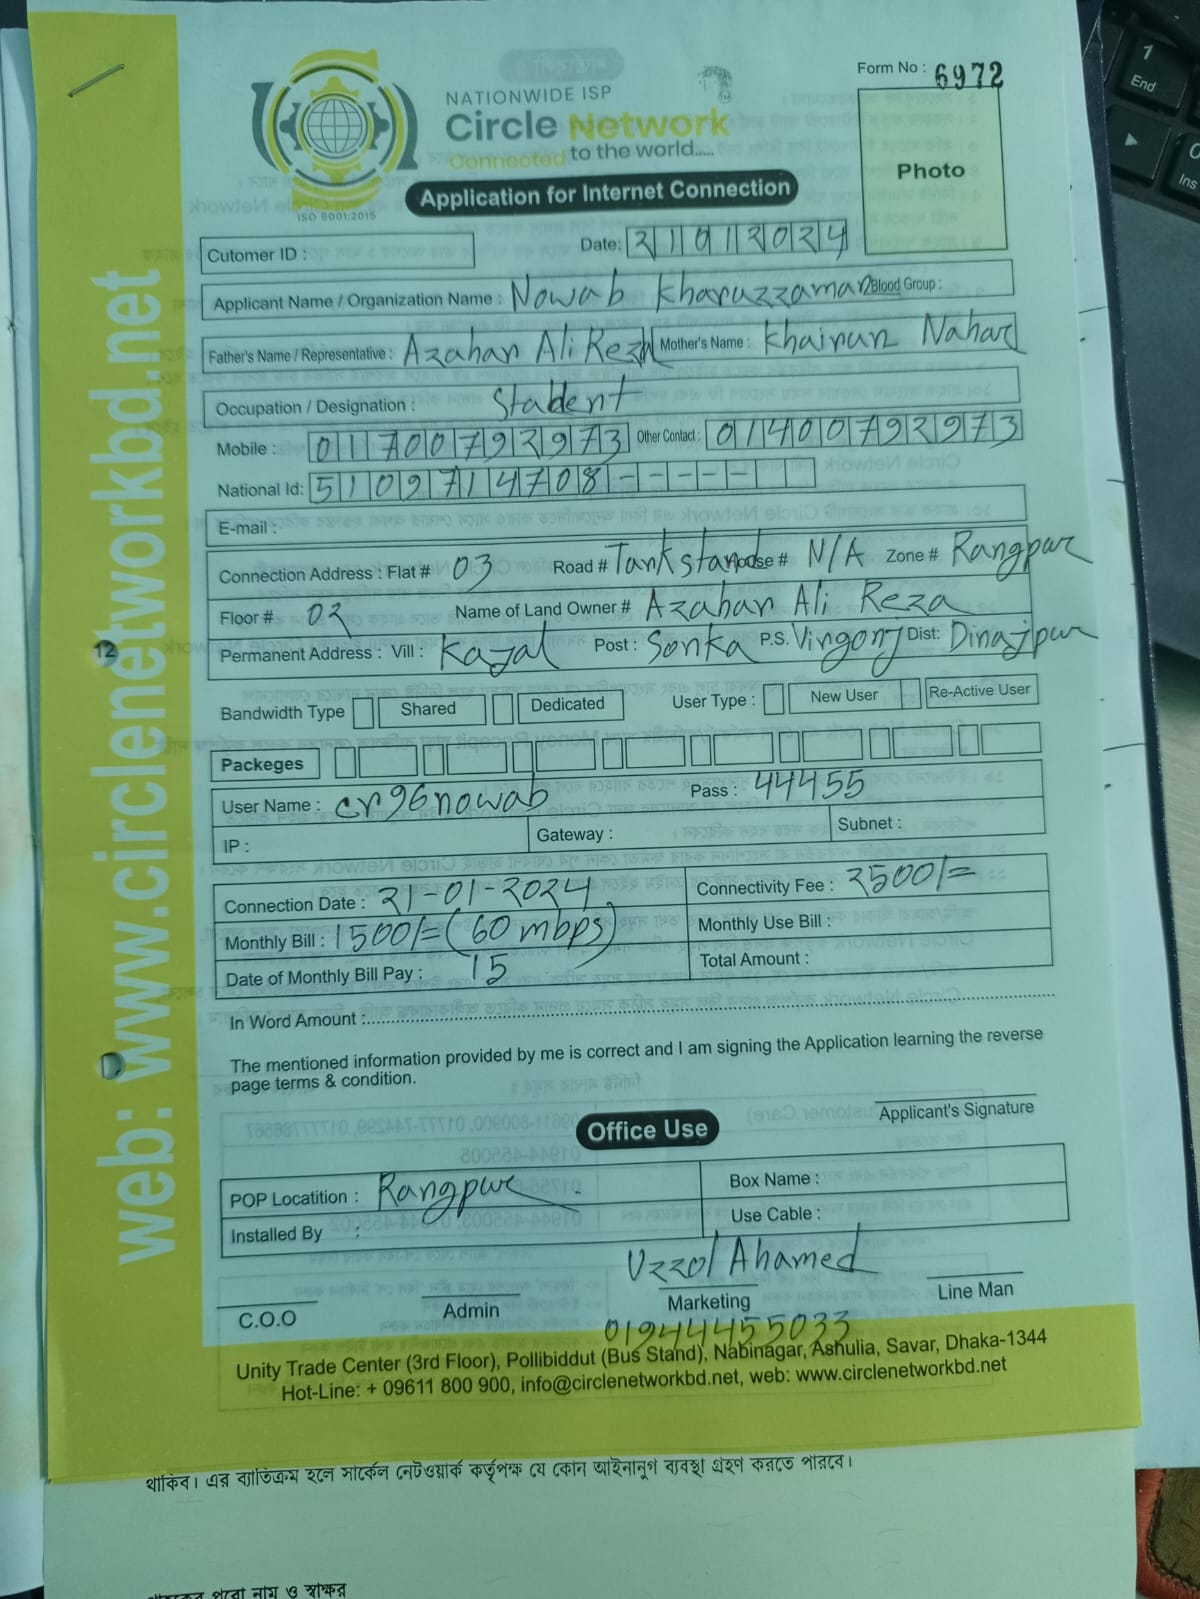 Form No : 6972
NATIONWIDE ISP
Circle Network
Connected to the world.....
ISO 9001:2015
Application for Internet Connection
Photo
Cutomer ID :
Date: 21012024
Applicant Name / Organization Name : Nowab Kharuzzaman Blood Group :
Father's Name / Representative : Azahar Ali Reza Mother's Name : Khairun Nahar
Occupation / Designation : Student
Mobile : 01700792973 Other Contact : 01400792973
National Id: 5109714708-----
E-mail :
Connection Address : Flat # 03 Road # Tankstand House # N/A Zone # Rangpur
Floor # 02 Name of Land Owner # Azahar Ali Reza
Permanent Address : Vill : Kajal Post : Sonka P.S. Virgonj Dist: Dinajpur
Bandwidth Type Shared Dedicated User Type : New User Re-Active User
Packeges
User Name : cr96nowab Pass : 44455
IP : Gateway : Subnet :
Connection Date : 21-01-2024 Connectivity Fee : 2500/=
Monthly Bill : 1500/= (60 mbps) Monthly Use Bill :
Date of Monthly Bill Pay : 15 Total Amount :
In Word Amount :
The mentioned information provided by me is correct and I am signing the Application learning the reverse
page terms & condition.
Applicant's Signature
Office Use
POP Locatition : Rangpur Box Name :
Installed By : Use Cable :
Uzzol Ahamed
C.O.O Admin Marketing Line Man
01944455033
Unity Trade Center (3rd Floor), Pollibiddut (Bus Stand), Nabinagar, Ashulia, Savar, Dhaka-1344
Hot-Line: + 09611 800 900, info@circlenetworkbd.net, web: www.circlenetworkbd.net
web: www.circlenetworkbd.net
12
থাকিব। এর ব্যতিক্রম হলে সার্কেল নেটওয়ার্ক কর্তৃপক্ষ যে কোন আইনানুগ ব্যবস্থা গ্রহণ করতে পারবে।
পুরো নাম ও স্বাক্ষর
1
End
Ins